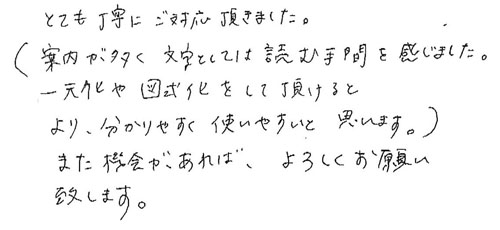 とても丁寧にご対応頂きました。
(案内が多く文字としては読む手間を感じました。
一元化や図式化をして頂けると
より、分かりやすく使いやすいと思います。)
また機会があれば、よろしくお願い
致します。